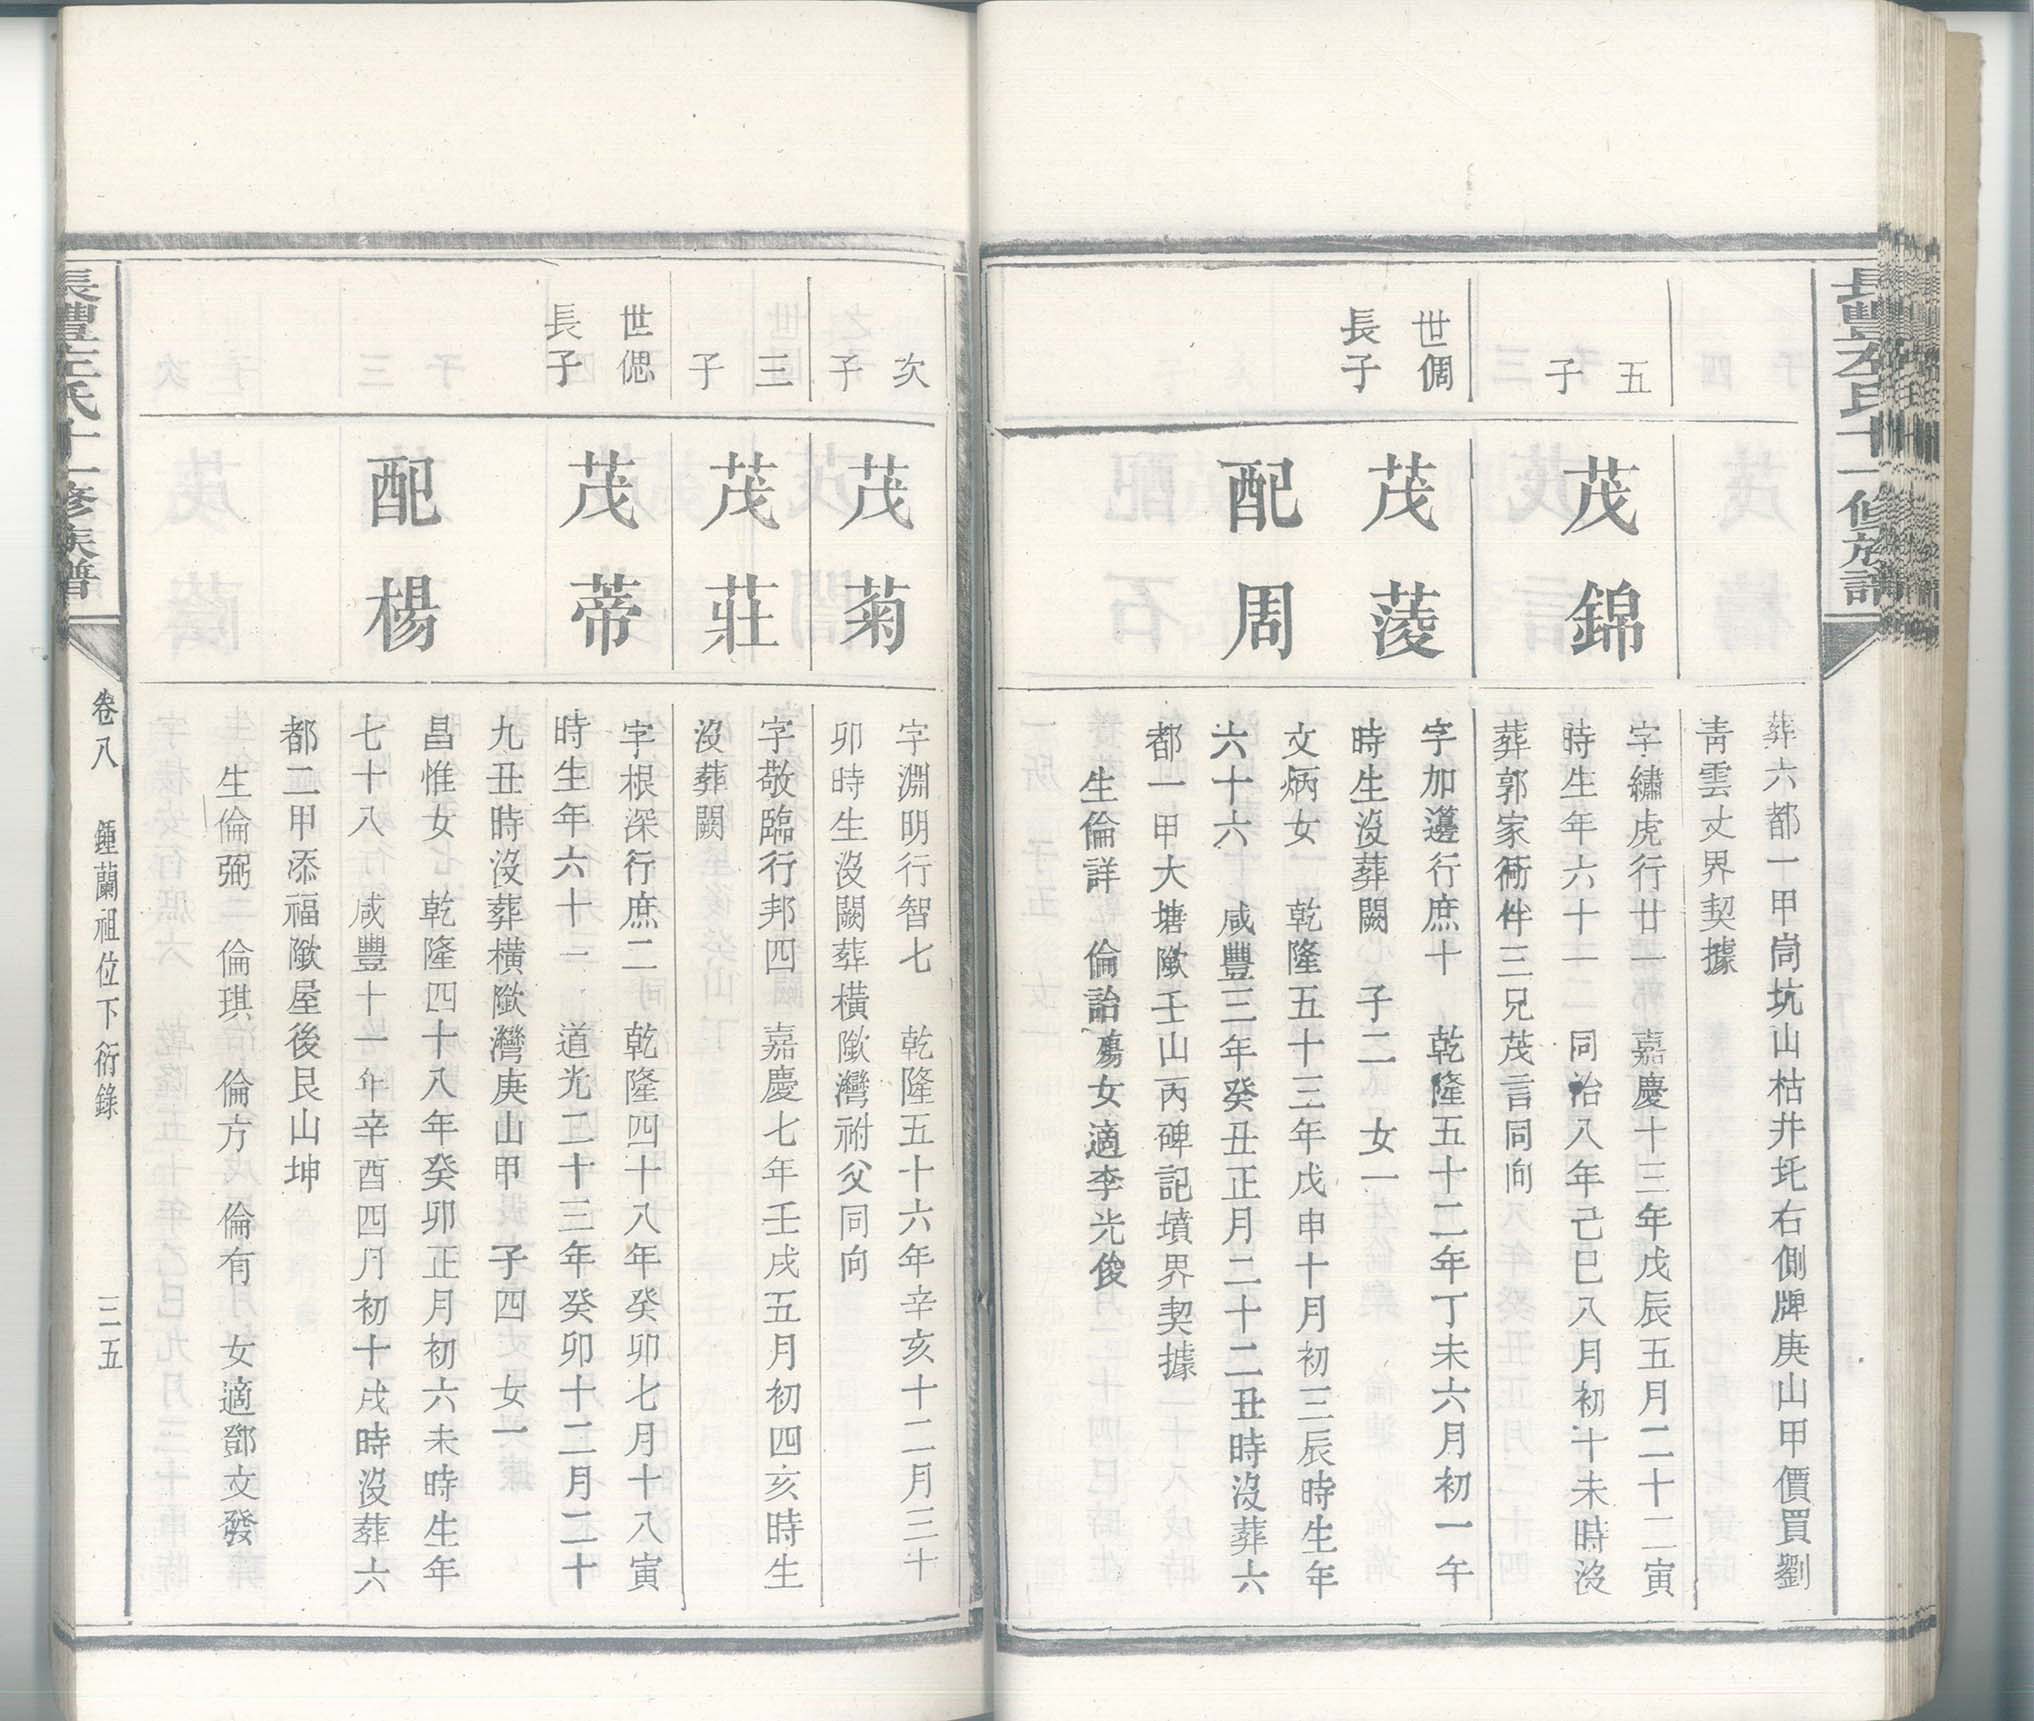 葬六都一甲崗坑山枯井圫右側牌庚山甲價買劉
青雲丈界契據
五子
茂錦
字繡虎行廿一　嘉慶十三年戊辰五月二十二寅
時生年六十二　同治八年己巳八月初十未時沒
葬郭家衕件三兄茂言同向
世倜長子
茂蓤
字加薘行庶十　乾隆五十二年丁未六月初一午
時生沒葬闕　子二　女一
配周
文炳女　乾隆五十三年戊申十月初三辰時生年
六十六　咸豐三年癸丑正月二十二丑時沒葬六
都一甲大塘墈壬山丙碑記墳界契據
生倫詳　倫詒殤女適李光俊
次子
茂菊
字淵明行智七　乾隆五十六年辛亥十二月三十
卯時生沒闕葬橫墈灣祔父同向
三子
茂莊
字敬臨行邦四　嘉慶七年壬戌五月初四亥時生
沒葬闕
世偲長子
茂蒂
字根深行庶二　乾隆四十八年癸卯七月十八寅
時生年六十一　道光二十三年癸卯十二月二十
九丑時沒葬橫墈灣庚山甲　子四　女一
配楊
昌惟女　乾隆四十八年癸卯正月初六未時生年
七十八　咸豐十一年辛酉四月初十戌時沒葬六
都二甲添福墈屋後艮山坤
生倫弼　倫琪　倫方　倫有　女適鄧文發
長豐左氏十一修族譜
卷八　鍾蘭祖位下衍錄　三五